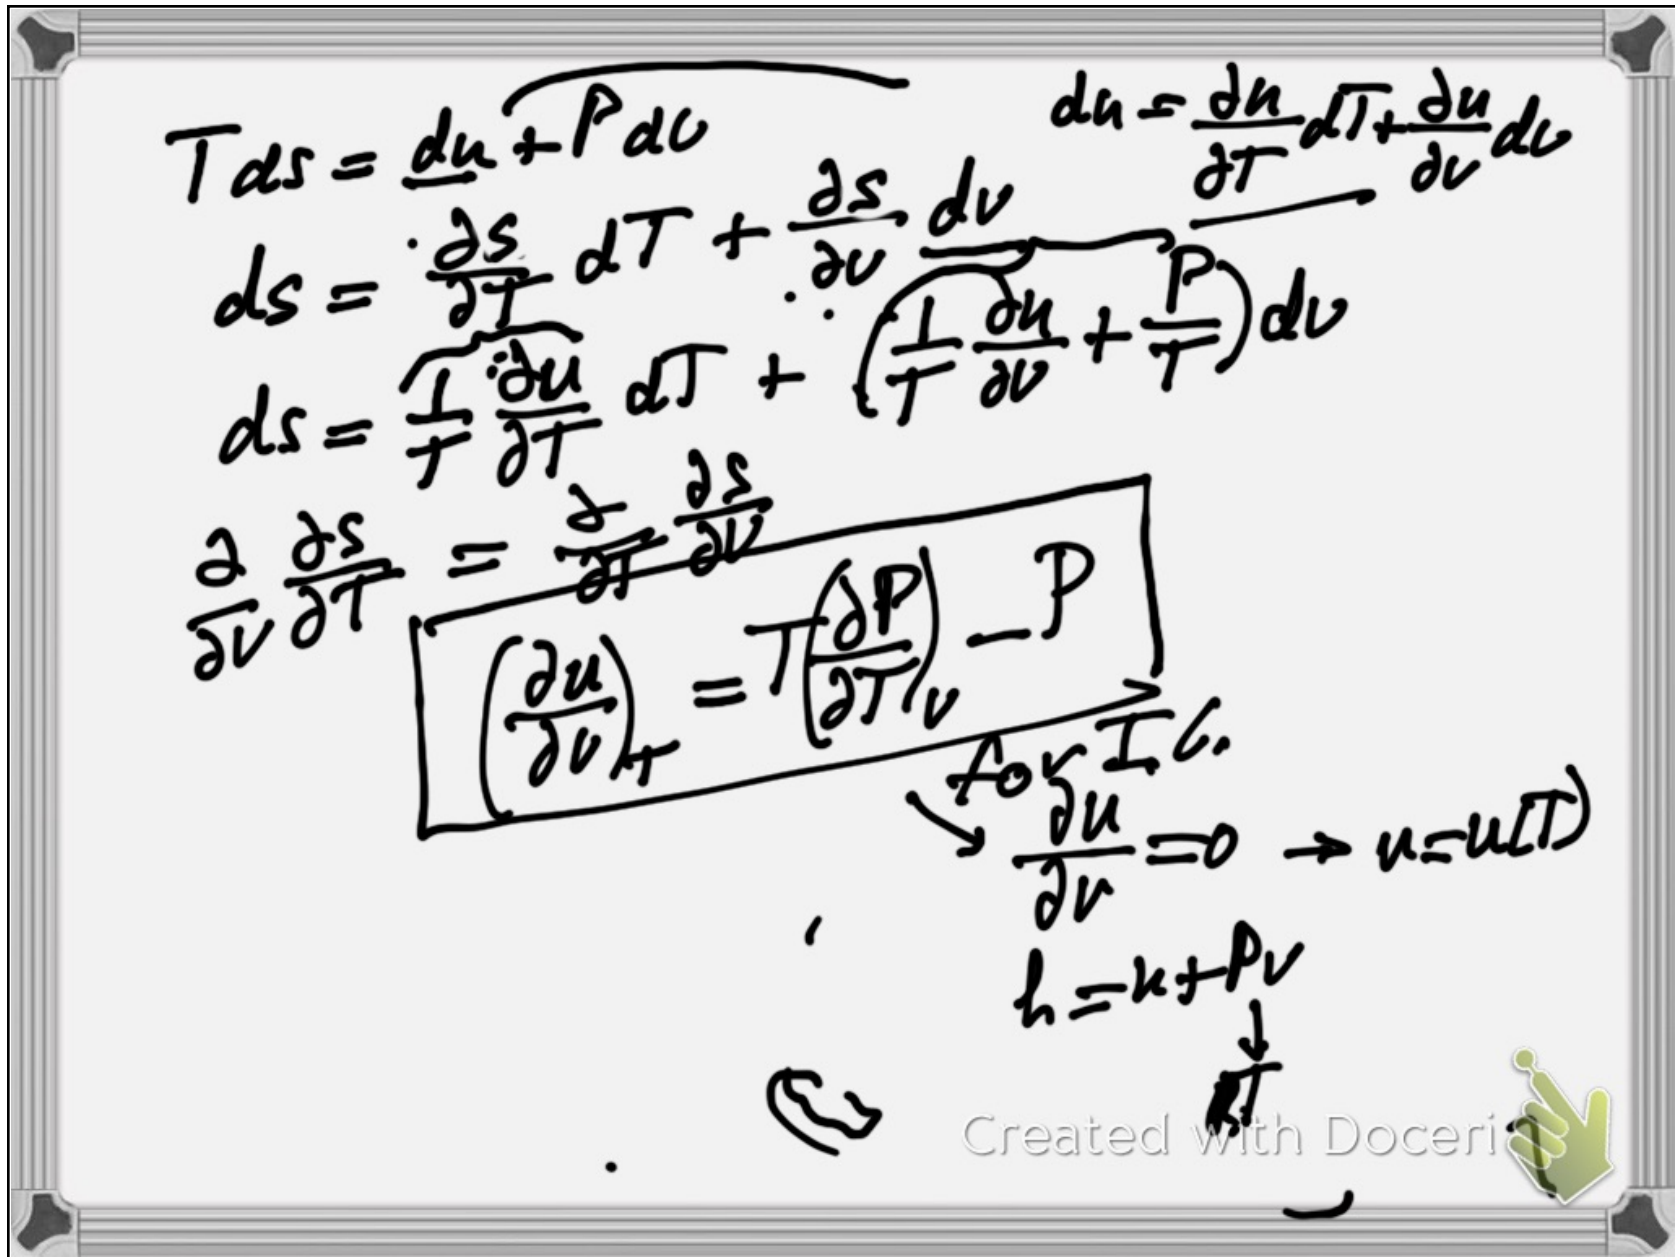 Tds = du + Pdv
du = ∂u/∂T dT + ∂u/∂v dv
ds = ∂s/∂T dT + ∂s/∂v dv
ds = 1/T ∂u/∂T dT + (1/T ∂u/∂v + P/T) dv
∂/∂v ∂s/∂T = ∂/∂T ∂s/∂v
(∂u/∂v)_T = T(∂P/∂T)_v − P
for I.G.
∂u/∂v = 0 → u = u(T)
h = u + Pv
↓
RT
Created with Doceri